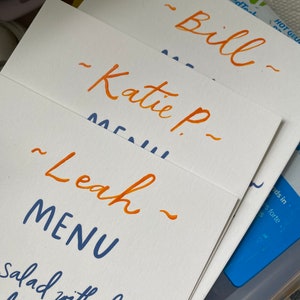 ~ Bill ~
~ Katie P. ~
MENU
~ Leah ~
MENU
salad with